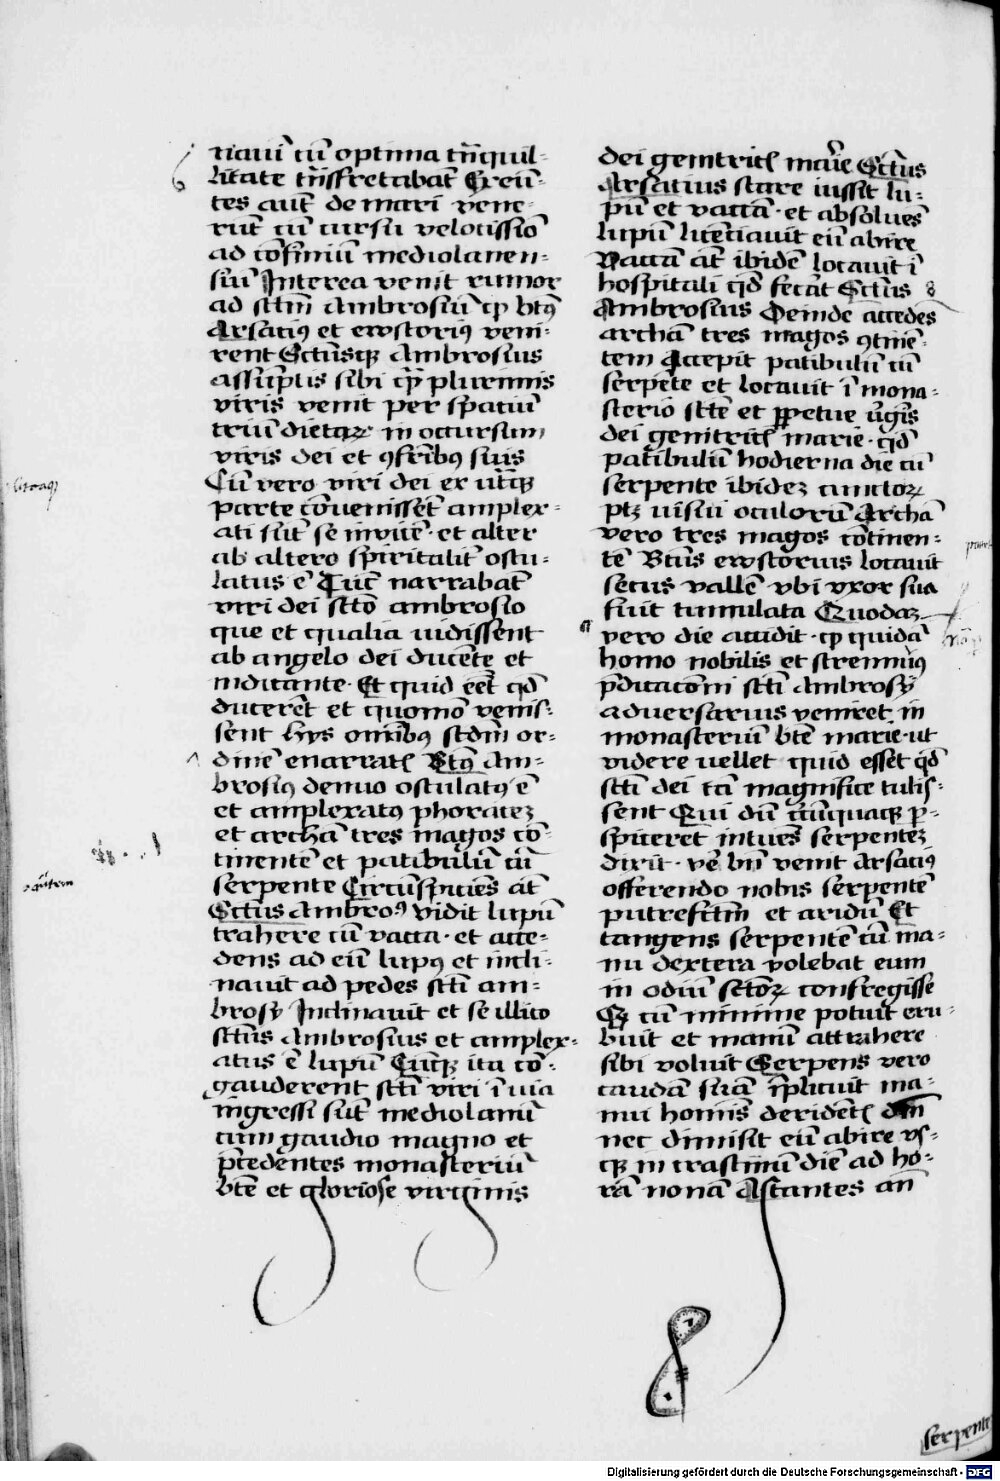 nauī cū optima trāquil-
litate trāsfretabāt Exeū-
tes aut̄ de mari vene-
rūt cū cursu velocissīo
ad cōfiniū mediolanen-
siū Interea venit rumor
ad sctm̄ Ambrosiū qꝫ btꝰ
Arsatiꝰ et ewstoriꝰ veni-
rent Sctūsqꝫ Ambrosius
assūptis sibi qꝫ plurimis
viris venit per spatiū
triū dietaꝝ in occursum
viris dei et ꝯfrībꝰ suis
Cū vero viri dei ex utraqꝫ
parte cōvenissēt amplex-
ati sūt se invicē · et alter
ab altero spiritalit̄ oscu-
latus ē Tūc narrabāt
viri dei sctō ambrosio
que et qualia vidissent
ab angelo dei ducēte et
inditante · Et quid eēt qd̄
ducerēt et quomō venis-
sent hijs omībꝰ scdm or-
dinē enarratis Btꝰ Am-
brosiꝰ denuo osculatꝰ ē
et amplexatꝰ
et archā tres magos cō-
tinentē et patibulū cū
serpente Circūspiciēs aūt
Sctūs Ambroꝰ vidit lupū
trahere cū vacca · et acce-
dens ad eū lupꝰ et incli-
navit ad pedes sctī am-
brosij Inclinavit et se illico
sctūs Ambrosius et amplex-
atus ē lupū Cūqꝫ ita cō-
gauderent sctī viri ī via
ingressi sūt mediolanū
cum gaudio magno et
p̄cedentes monasteriū
btē et gloriose virginis
dei genitricis marie Sctūs
Arsatius stare iussit lu-
pū et vaccā · et absolvēs
lupū licēciavit eū abire
Vaccā aūt ibidē locavit ī
hospitali qd̄ fecāt Sctūs
Ambrosius Deinde accedēs
archā tres magos ꝯtinē-
tem Accepit patibulū cū
serpēte et locavit ī mona-
sterio sctē et ꝑpetue v̄gīs
dei genitricis marie · qd̄
patibulū hodierna die cū
serpente ibideꝫ cunctoꝝ
ptꝫ visui oculorū Archā
vero tres magos cōtinen-
tē Btūs ewstorius locavit
secus vallē vbi vxor sua
fuit tumulata Quodaꝫ
vero die audit · qꝫ quidā
homo nobilis et strennuꝰ
p̄dicacōni sctī Ambrosij
adversarius veniret in
monasteriū btē marie · ut
videre vellet quid esset qd̄
sctī dei tā magnifice tulis-
sent Qui dū p̄-
spiceret intuēs serpenteꝫ
dixit · vē bn̄ venit Arsatiꝰ
offerendo nobis serpentē
putrefctm̄ et aridū Et
tangens serpentē cū ma-
nu dextera volebat eum
in odiū sctōꝝ confregisse
Qꝫ cū minime potuit eru-
buit et manū attrahere
sibi voluit Serpens vero
caudā suā īplicuit ma-
nui hominis deridentis
nec dimisit eū abire vs-
qꝫ in crastinū diē ad ho-
rā nonā Astantes aūt
serpente
Digitalisierung gefördert durch die Deutsche Forschungsgemeinschaft - DFG